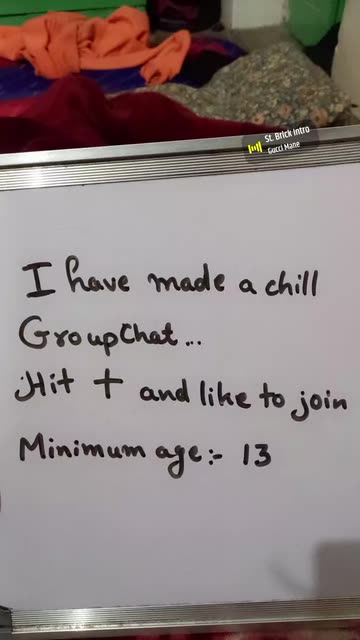 St. Brick Intro
Gucci Mane
I have made a chill
GroupChat...
Hit + and like to join
Minimum age:- 13